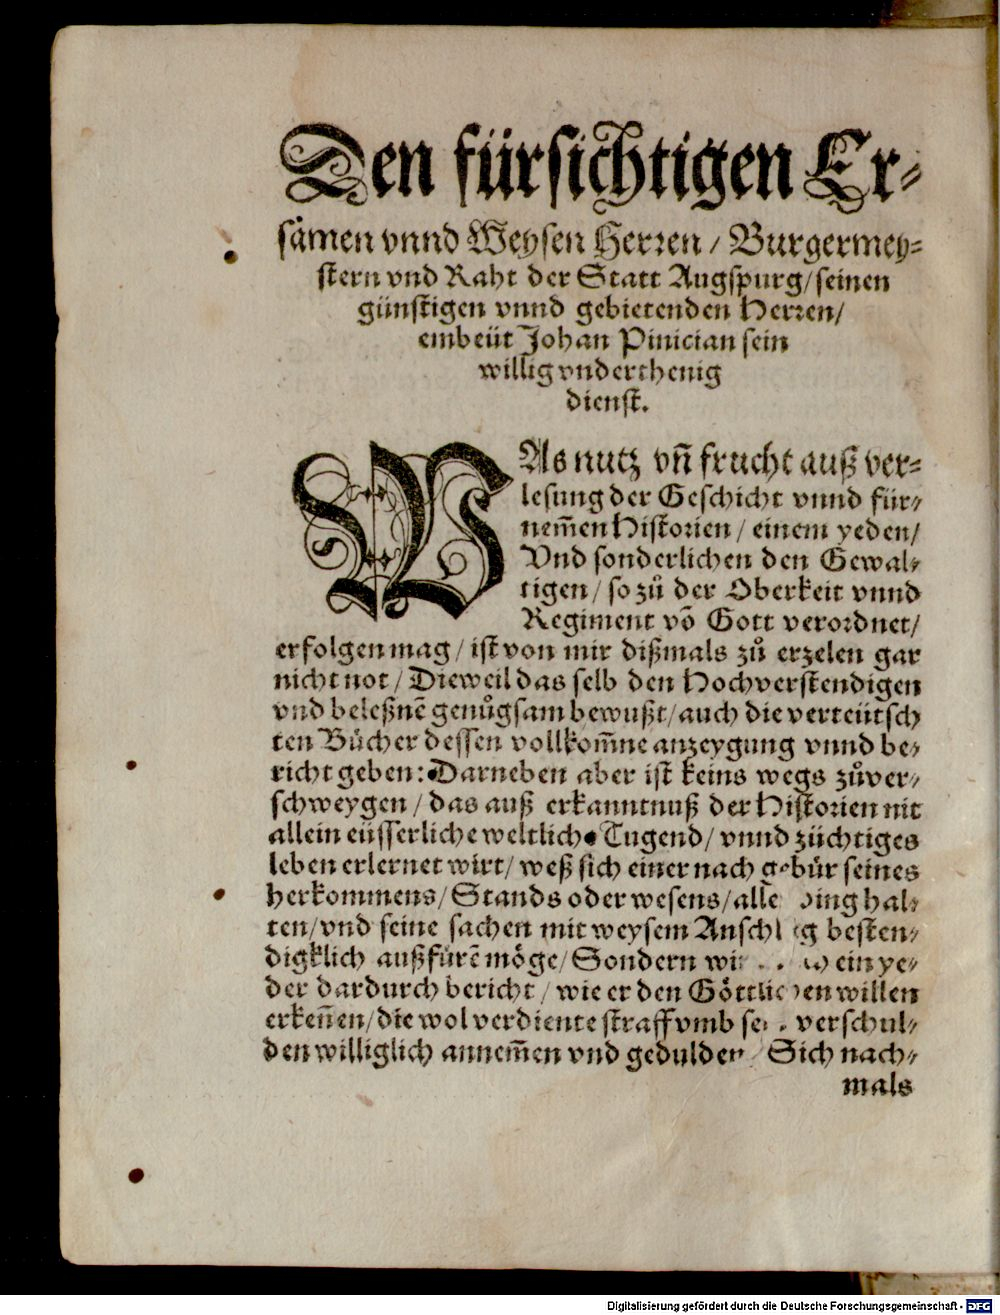 Den fürsichtigen Er⸗
sämen vnnd Weysen Herren / Burgermey⸗
stern vnd Raht der Statt Augspurg / seinen
günstigen vnnd gebietenden Herren /
embeüt Johan Pinician sein
willig vnderthenig
dienst.
WAs nutz vn̄ frucht auß ver⸗
lesung der Geschicht vnnd für⸗
nem̄en Historien / einem yeden /
Vnd sonderlichen den Gewal⸗
tigen / so zů der Oberkeit vnnd
Regiment võ Gott verordnet /
erfolgen mag / ist von mir dißmals zů erzelen gar
nicht not / Dieweil das selb den Hochverstendigen
vnd beleßnẽ genůgsam bewußt / auch die verteütsch
ten Bücher dessen vollkom̄ne anzeygung vnnd be⸗
richt geben: Darneben aber ist keins wegs zůver⸗
schweygen / das auß erkanntnuß der Historien nit
allein eüsserliche weltliche Tugend / vnnd züchtiges
leben erlernet wirt / weß sich einer nach gebür seines
herkommens / Stands oder wesens / alle ding hal⸗
ten / vnd seine sachen mit weysem Anschlag besten⸗
digklich außfürẽ möge / Sondern ein ye⸗
der dardurch bericht / wie er den Göttlichen willen
erken̄en / die wol verdiente straff vmb sein verschul⸗
den williglich annem̄en vnd gedulden / Sich nach⸗
mals
Digitalisierung gefördert durch die Deutsche Forschungsgemeinschaft - DFG